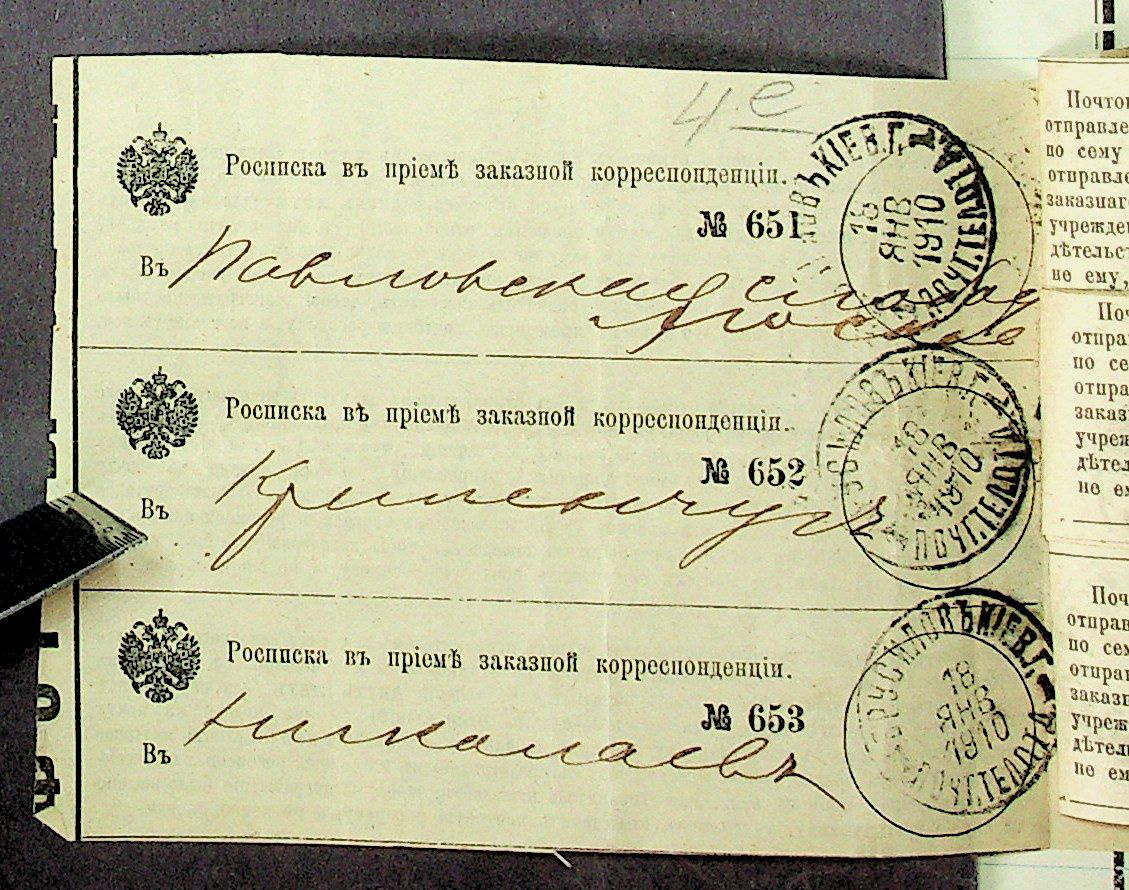 4 е
Росписка въ пріемѣ заказной корреспонденціи.
№ 651
Въ Павловская слобод
18
ЯНВ
1910
КІЕВ.Г.
ПОЧТ.ТЕЛ.ОТД.
Росписка въ пріемѣ заказной корреспонденціи.
№ 652
Въ Кременчугъ
18
ЯНВ
1910
КІЕВ.Г.
ПОЧТ.ТЕЛ.ОТД.
Росписка въ пріемѣ заказной корреспонденціи.
№ 653
Въ Николаевъ
БРУСИЛОВЪ КІЕВ.Г.
18
ЯНВ
1910
ПОЧТ.ТЕЛ.ОТД.
Почтов
отправле
по сему
отправле
заказнаг
учрежден
дѣтельст
не ему,
Поч
отпра
по се
отпра
заказ
учреж
дѣтел
не ем
Поч
отправ
по сем
отправ
заказн
учреж
дѣтел
не ем